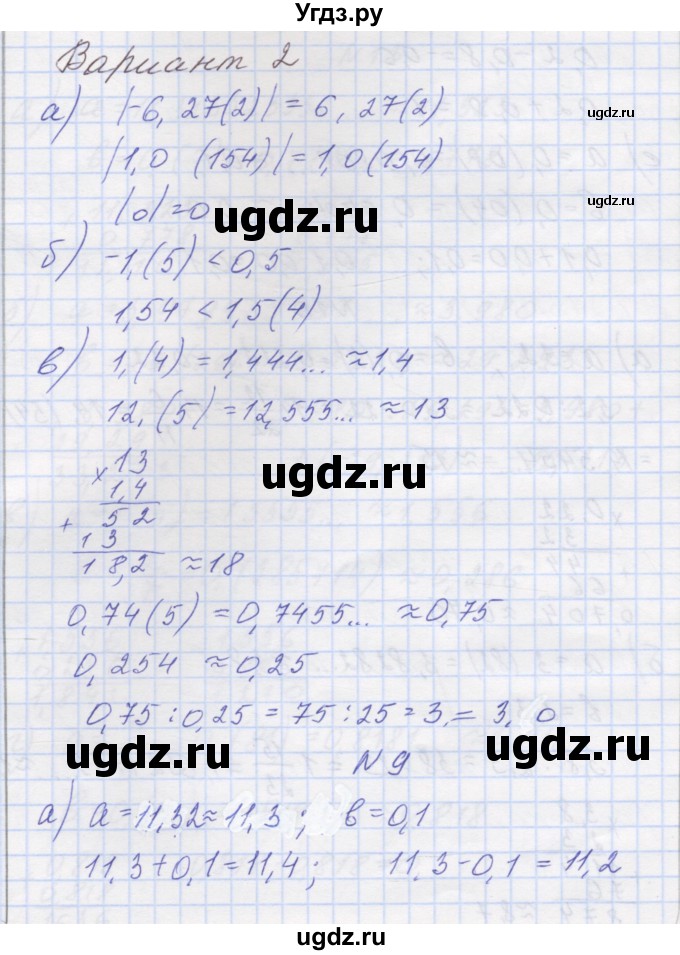 Угдз.ру
Вариант 2
а) |-6,27(2)| = 6,27(2)
ugdz.ru
|1,0 (154)| = 1,0(154)
|0|=0
ugdz.ru
ugdz.ru
б) -1,(5) < 0,5
1,54 < 1,5(4)
в) 1,(4) = 1,444... ≈1,4
12,(5) = 12,555... ≈ 13
×13
1,4
ugdz.ru
+ 52
13
18,2 ≈18
0,74(5) = 0,7455... ≈0,75
0,254 ≈0,25
0,75:0,25 = 75:25=3,= 3,0
ugdz.ru
ugdz.ru
N 9
а) а=11,32≈11,3; в=0,1
11,3+0,1=11,4; 11,3-0,1 = 11,2
ugdz.ru